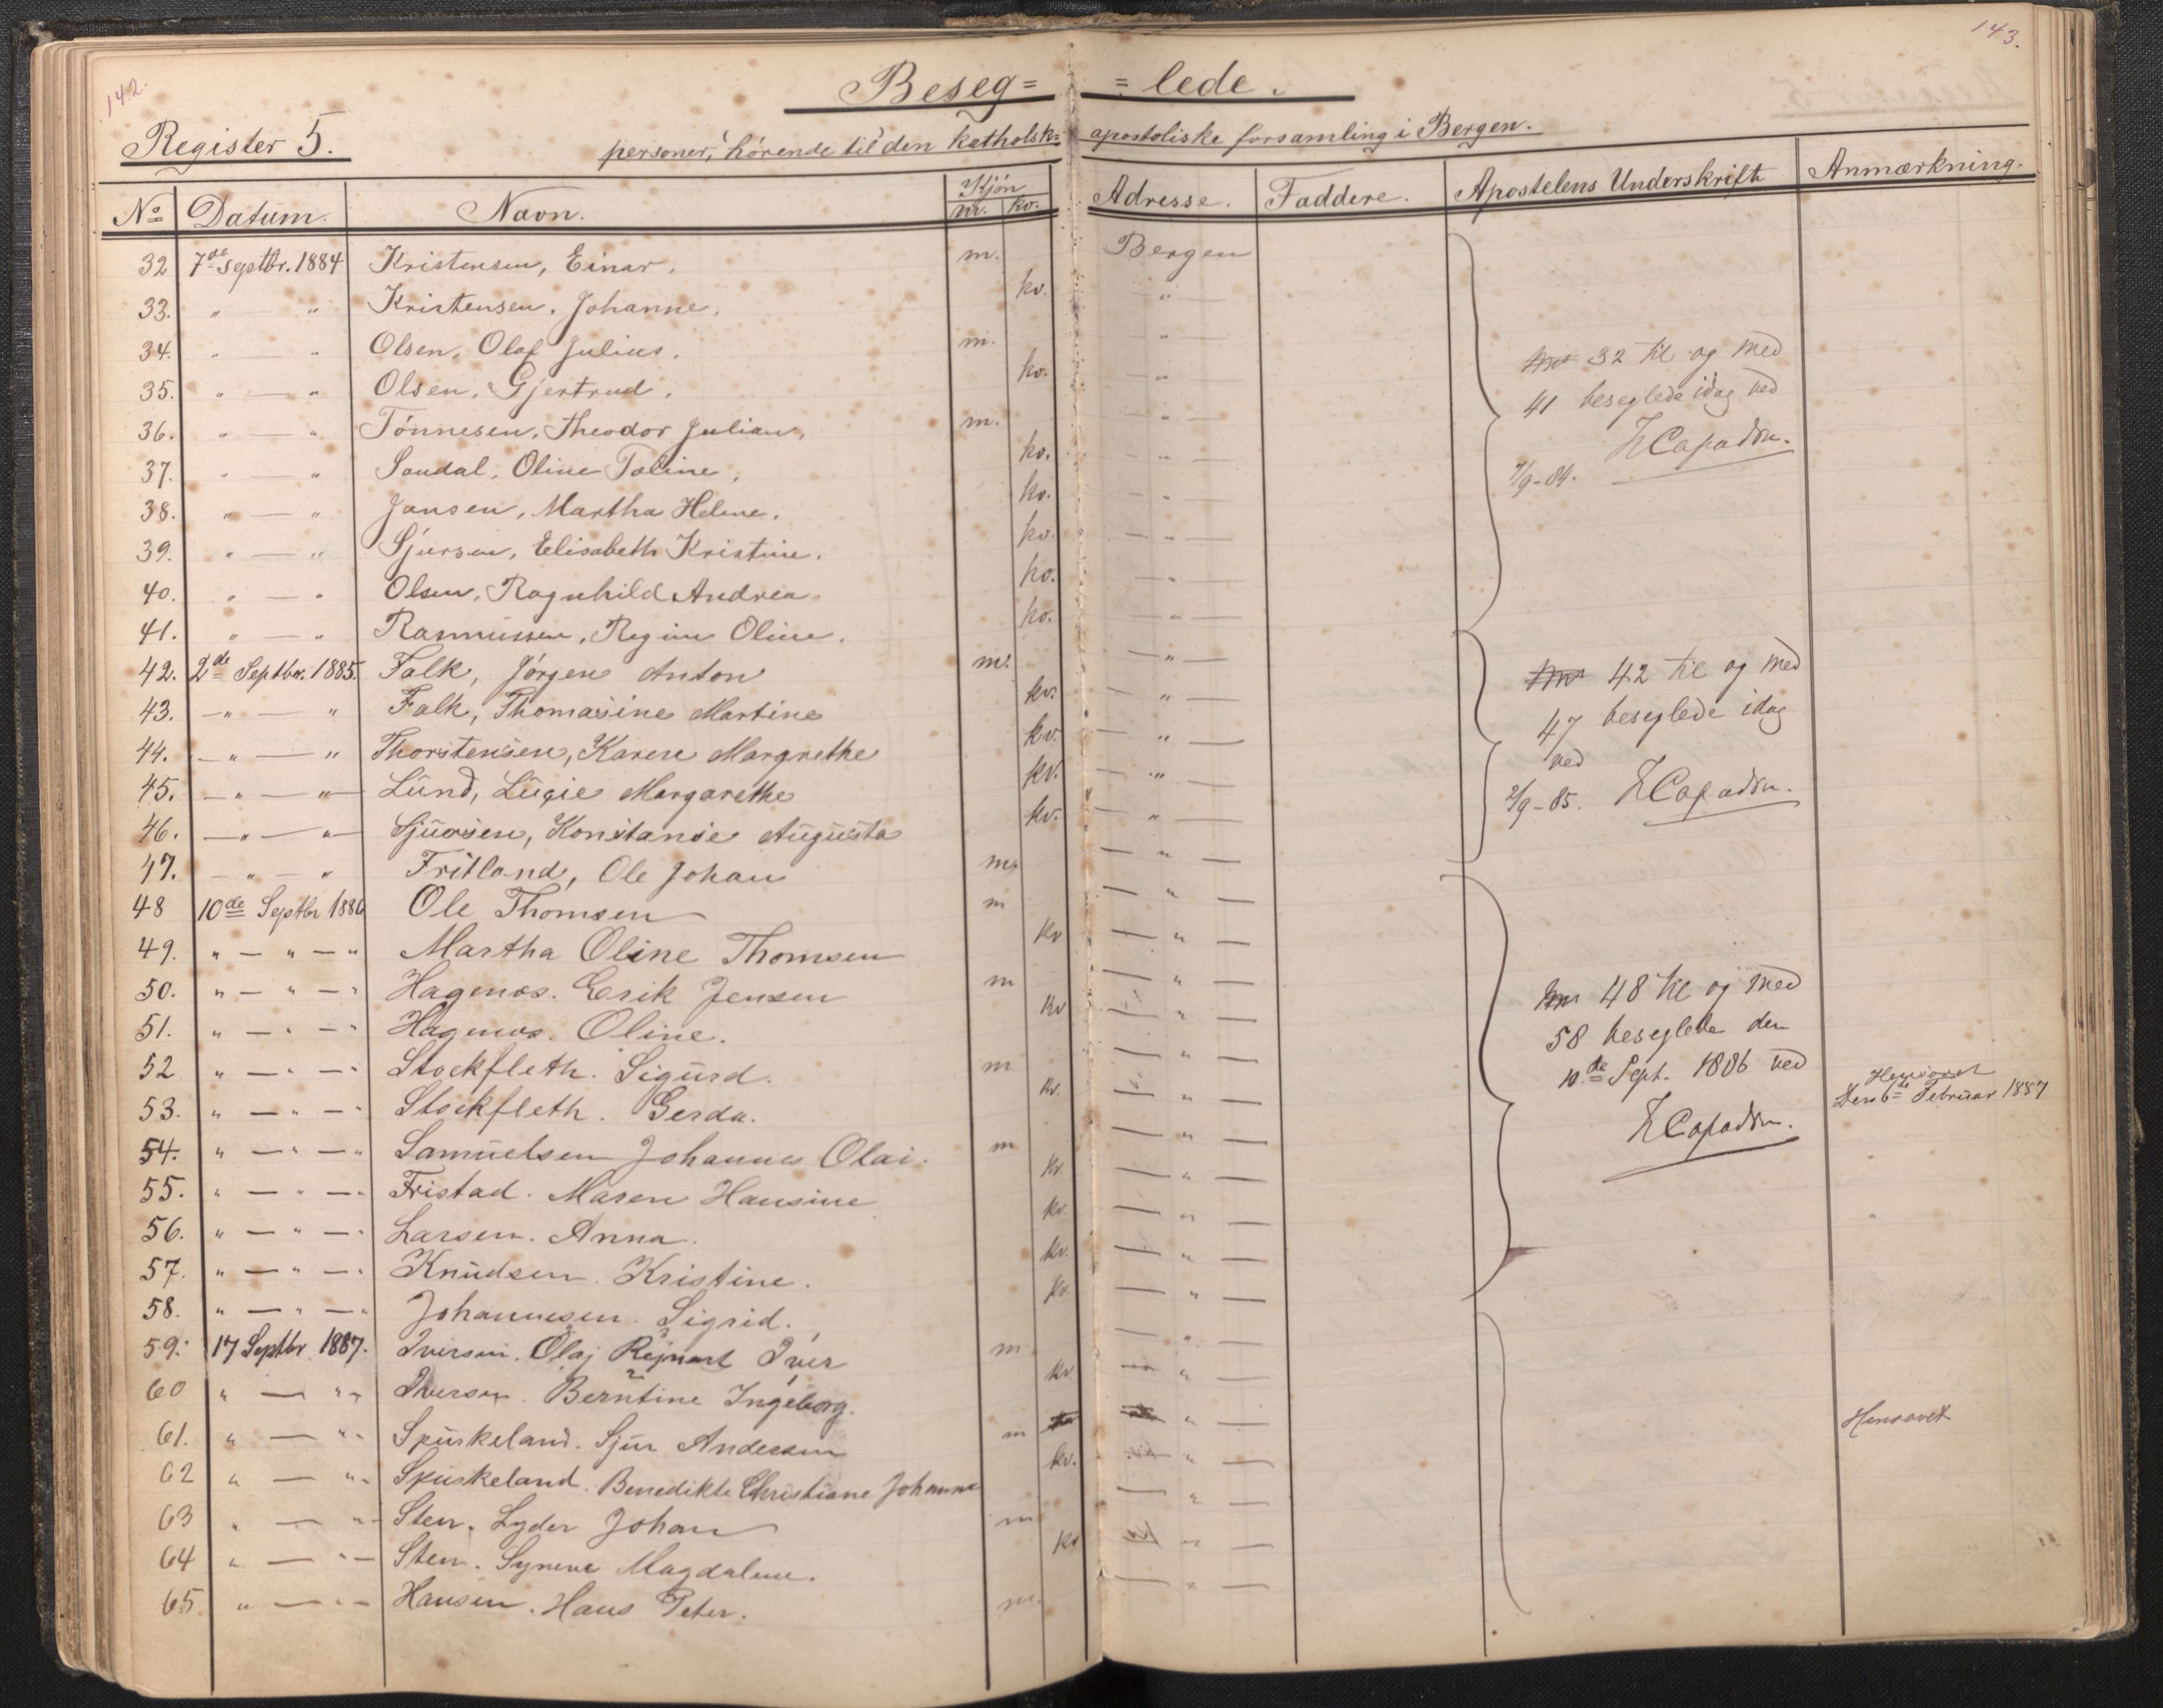 142.
143.
Beseg= =lede.
Register 5.
personer, hörende til den katholsk= apostoliske forsamling i Bergen.
No Datum. Navn. Kjön m. kv. Adresse. Faddere. Apostelens Underskrift Anmærkning.
32 7de Septbr. 1884 Kristensen, Einar. m. Bergen
33. " — " Kristensen, Johanne. kv. — " —
34. " — " Olsen, Olaf Julius. m. — " —
35. " — " Olsen, Gjertrud. kv. — " —
36. " — " Tönnesen, Theodor Julian. m. — " —
37. " — " Sandal, Oline Taline. kv. — " —
38. " — " Jansen, Martha Helene. kv. — " —
39. " — " Sjursen, Elisabeth Kristine. kv. — " —
40. " — " Olsen, Ragnhild Andrea kv. — " —
41. " — " Rasmussen, Regine Oline. kv. — " —
32 til og med
41 beseglede idag ved
7/9-84.
42. 2de Septbr. 1885. Falk, Jörgen Anton m. — " —
43. — " — " Falk, Thomasine Martine kv. — " —
44. — " — " Thorstensen, Karen Margrethe kv. — " —
45. — " — " Lund, Lucie Margarethe kv. — " —
46. — " — " Sjursen, Konstanse Augusta kv. — " —
47. — " — " Fritland, Ole Johan m. — " —
42 til og med
47 beseglede idag
ved
2/9-85.
48 10de Septbr 1886 Ole Thomsen m — " —
49. " — " — " Martha Oline Thomsen kv — " —
50. " — " — " Hagenos. Erik Jensen m — " —
51. " — " — " Hagenos. Oline. kv — " —
52 " — " — " Stockfleth. Sigurd. m — " —
53. " — " — " Stockfleth. Gerda. kv. — " —
54. " — " — " Samuelsen Johannes Olai. m — " —
55. " — " — " Fristad. Maren Hansine kv — " —
56. " — " — " Larsen. Anna. kv. — " —
57. " — " — " Knudsen. Kristine. kv. — " —
58. " — " — " Johannesen. Sigrid. kv. — " —
48 til og med
58 beseglede den
10de Sept. 1886 ved
Hensovet
Den 6te Februar 1887
59. 17 Septbr 1887. Iversen. Olaj Rejnert Iver m — " —
60 " — " " Iversen. Berntine Ingeborg. kv — " —
61. " — " " Spurkeland. Sjur Andersen m — " — Hensovet
62 " — " " Spurkeland. Benedikte Christiane Johanne kv. — " —
63 " — " " Sten. Lyder Johan m — " —
64 " — " — Sten. Syneve Magdalene. kv — " —
65 " — " — Hansen. Hans Peter. m. — " —